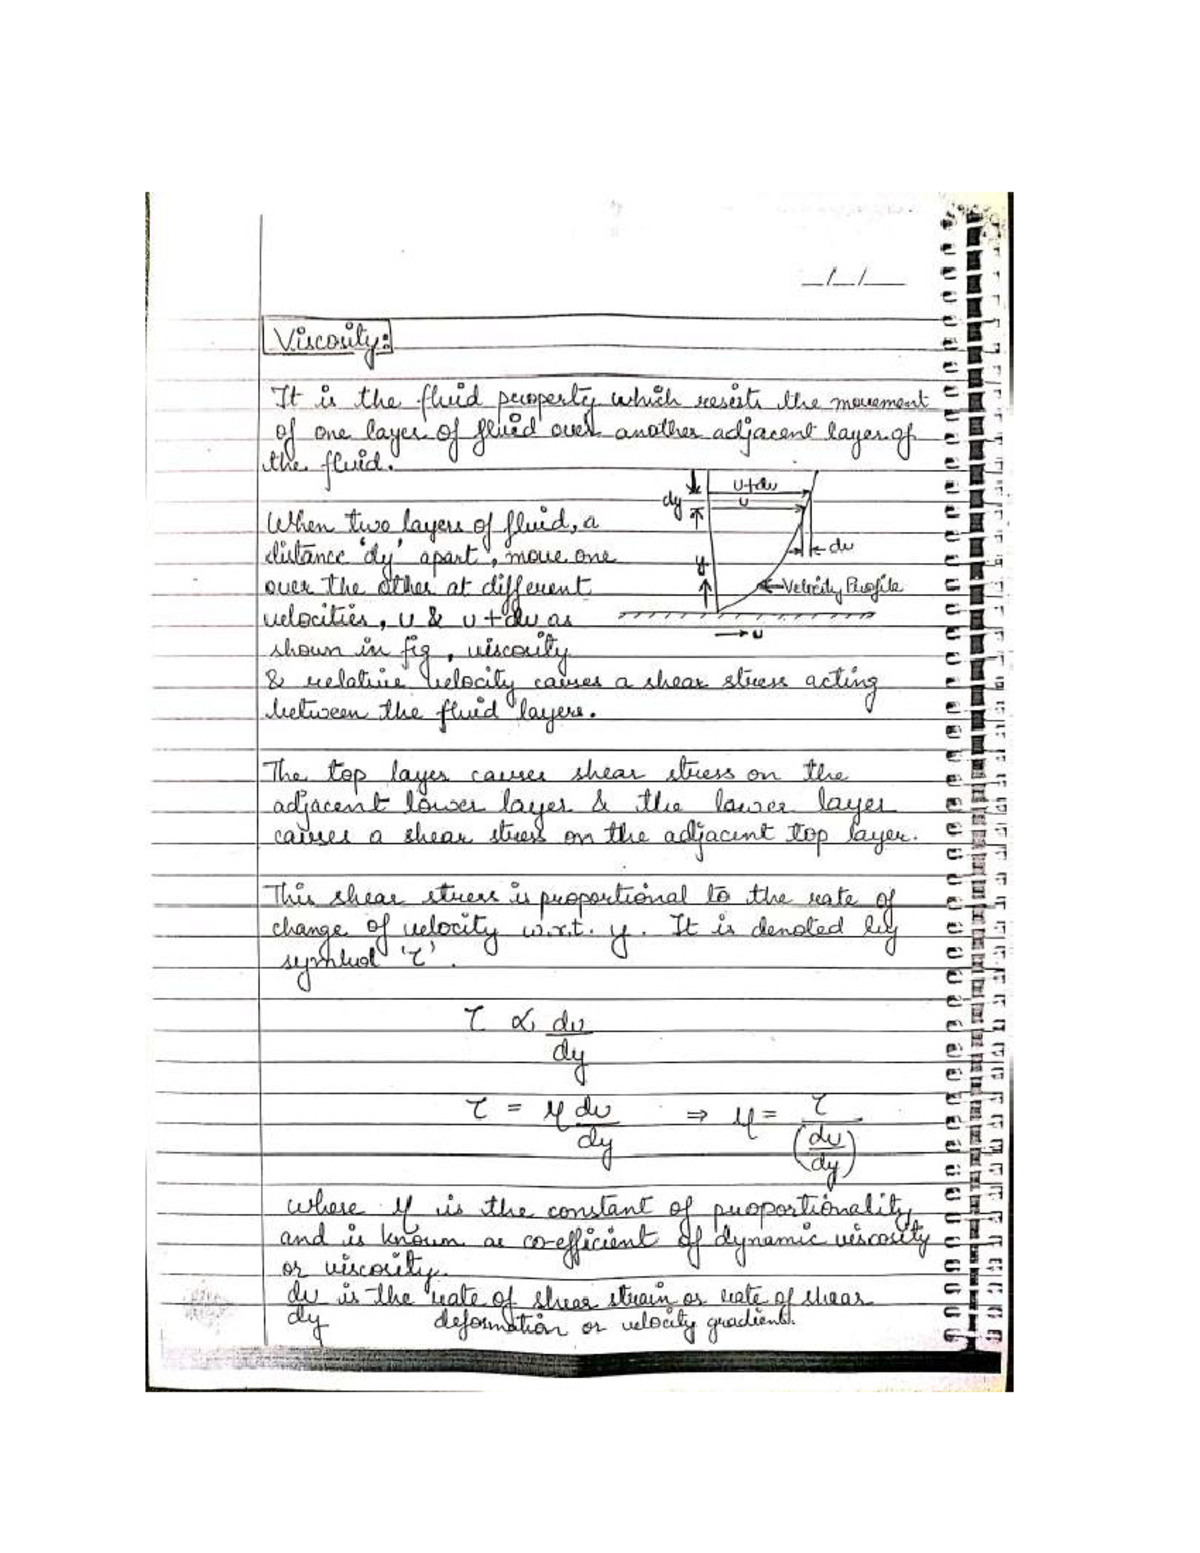 _/_/__
Viscosity:
It is the fluid property which resists the movement
of one layer of fluid over another adjacent layer of
the fluid.
u+du
dy
u
du
y
Velocity Profile
u
When two layers of fluid, a
distance 'dy' apart, move one
over the other at different
velocities, u & u+du as
shown in fig, viscosity
& relative velocity causes a shear stress acting
between the fluid layers.
The top layer causes shear stress on the
adjacent lower layer & the lower layer
causes a shear stress on the adjacent top layer.
This shear stress is proportional to the rate of
change of velocity w.r.t. y. It is denoted by
symbol 'τ'.
τ ∝ du/dy
τ = μ du/dy ⇒ μ = τ/(du/dy)
where μ is the constant of proportionality
and is known as co-efficient of dynamic viscosity
or viscosity.
du/dy is the rate of shear strain or rate of shear
deformation or velocity gradient.